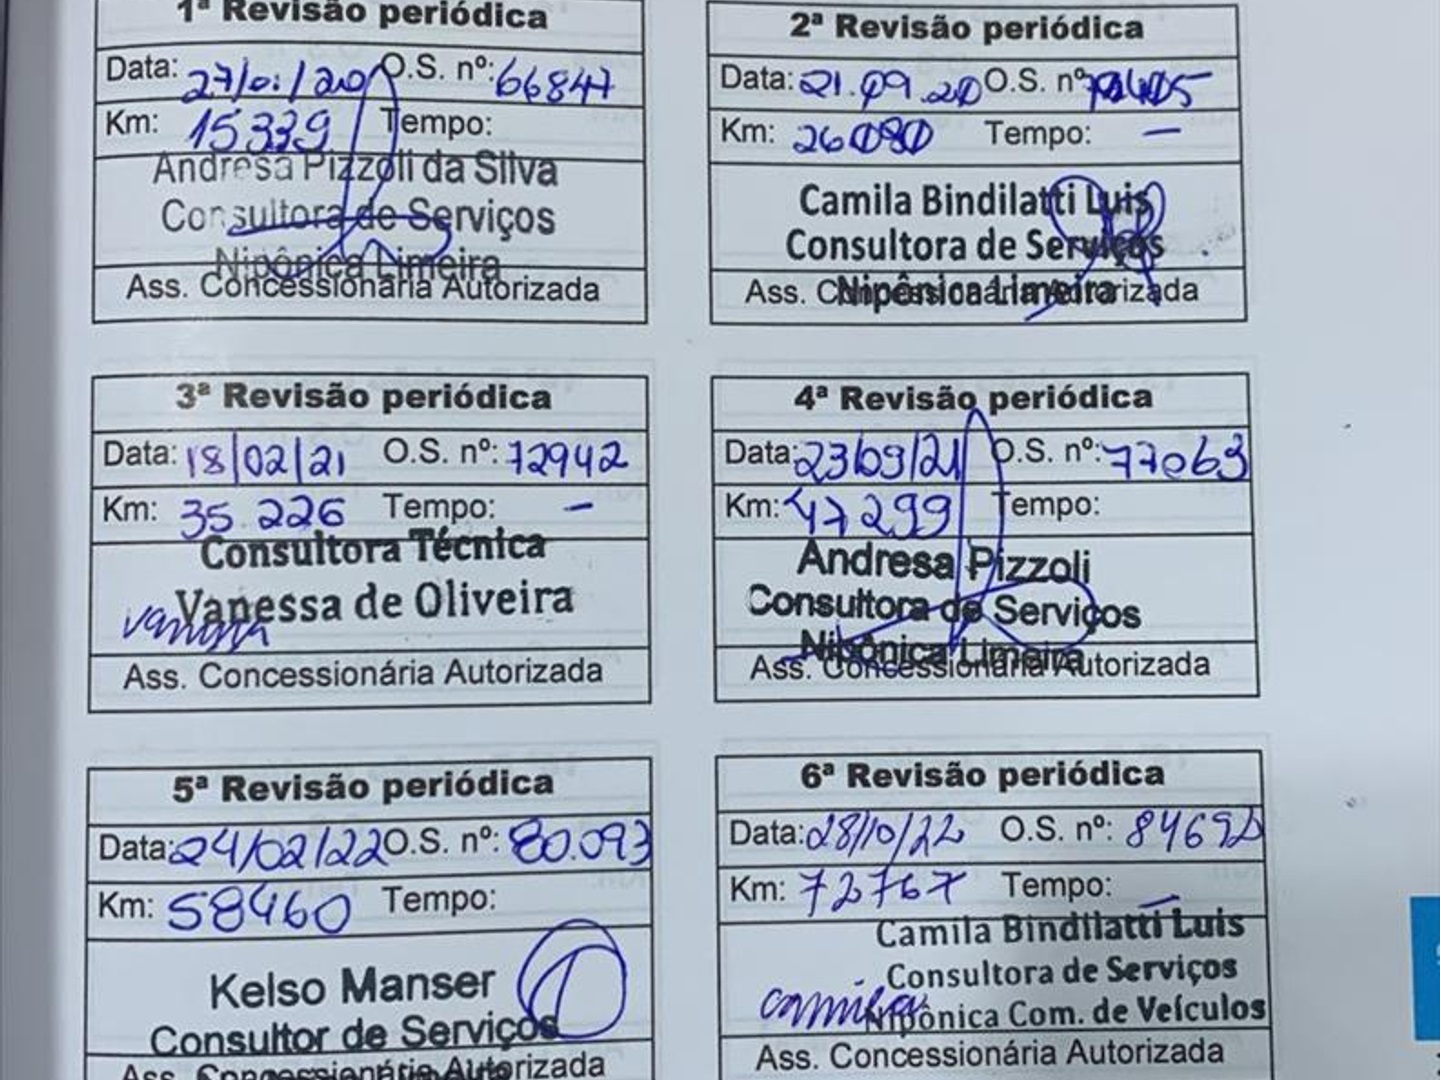 1ª Revisão periódica
Data: 27/01/20 O.S. nº: 66847
Km: 15339 Tempo:
Andresa Pizzoli da Silva
Consultora de Serviços
Nipônica Limeira
Ass. Concessionária Autorizada
2ª Revisão periódica
Data: 21.09.20 O.S. nº
Km: 26080 Tempo: —
Camila Bindilatti Luis
Consultora de Serviços
Nipônica Limeira
Ass. Concessionária Autorizada
3ª Revisão periódica
Data: 18/02/21 O.S. nº: 72942
Km: 35.226 Tempo: -
Consultora Técnica
Vanessa de Oliveira
Vanessa
Ass. Concessionária Autorizada
4ª Revisão periódica
Data: 23/09/21 O.S. nº: 77063
Km: 47299 Tempo:
Andresa Pizzoli
Consultora de Serviços
Nipônica Limeira
Ass. Concessionária Autorizada
5ª Revisão periódica
Data: 24/02/22 O.S. nº: 80.093
Km: 58460 Tempo:
Kelso Manser
Consultor de Serviços
Ass. Concessionária Autorizada
6ª Revisão periódica
Data: 28/10/22 O.S. nº: 84692
Km: 72767 Tempo: —
Camila Bindilatti Luis
Consultora de Serviços
Nipônica Com. de Veículos
camila
Ass. Concessionária Autorizada